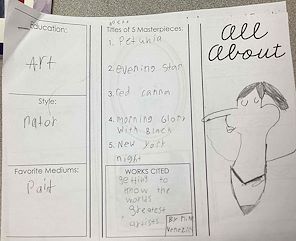 Education:
Art
Style:
nator
Favorite Mediums:
Paint
Titles of 5 Masterpieces:
1. Petunia
2. evening star
3. red canna
4. morning Glory
With Black
5. New York
night
WORKS CITED
getting to
know the
worlds
greatest
artists
BY Mike
Venezia
all
About